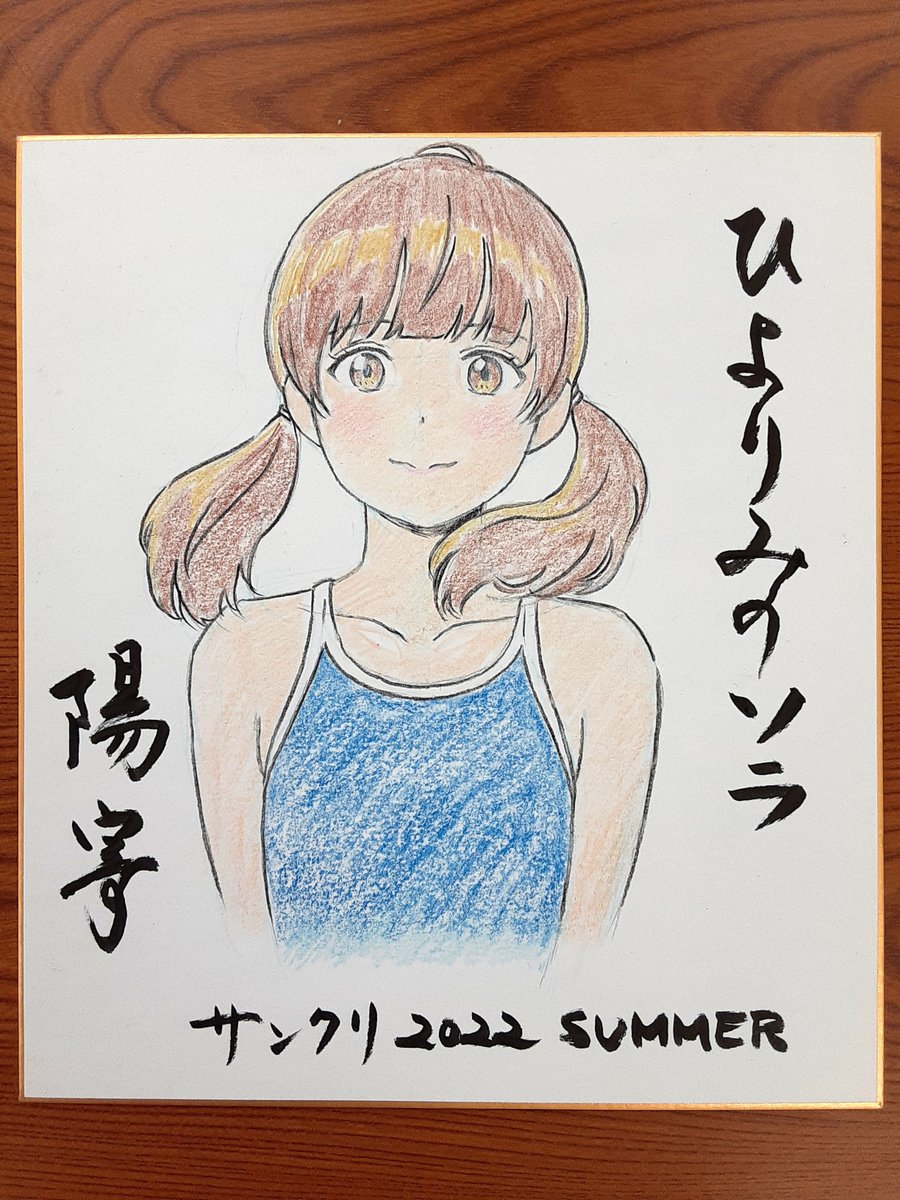 ひよりみのソラ
陽寄
サンクリ 2022 SUMMER